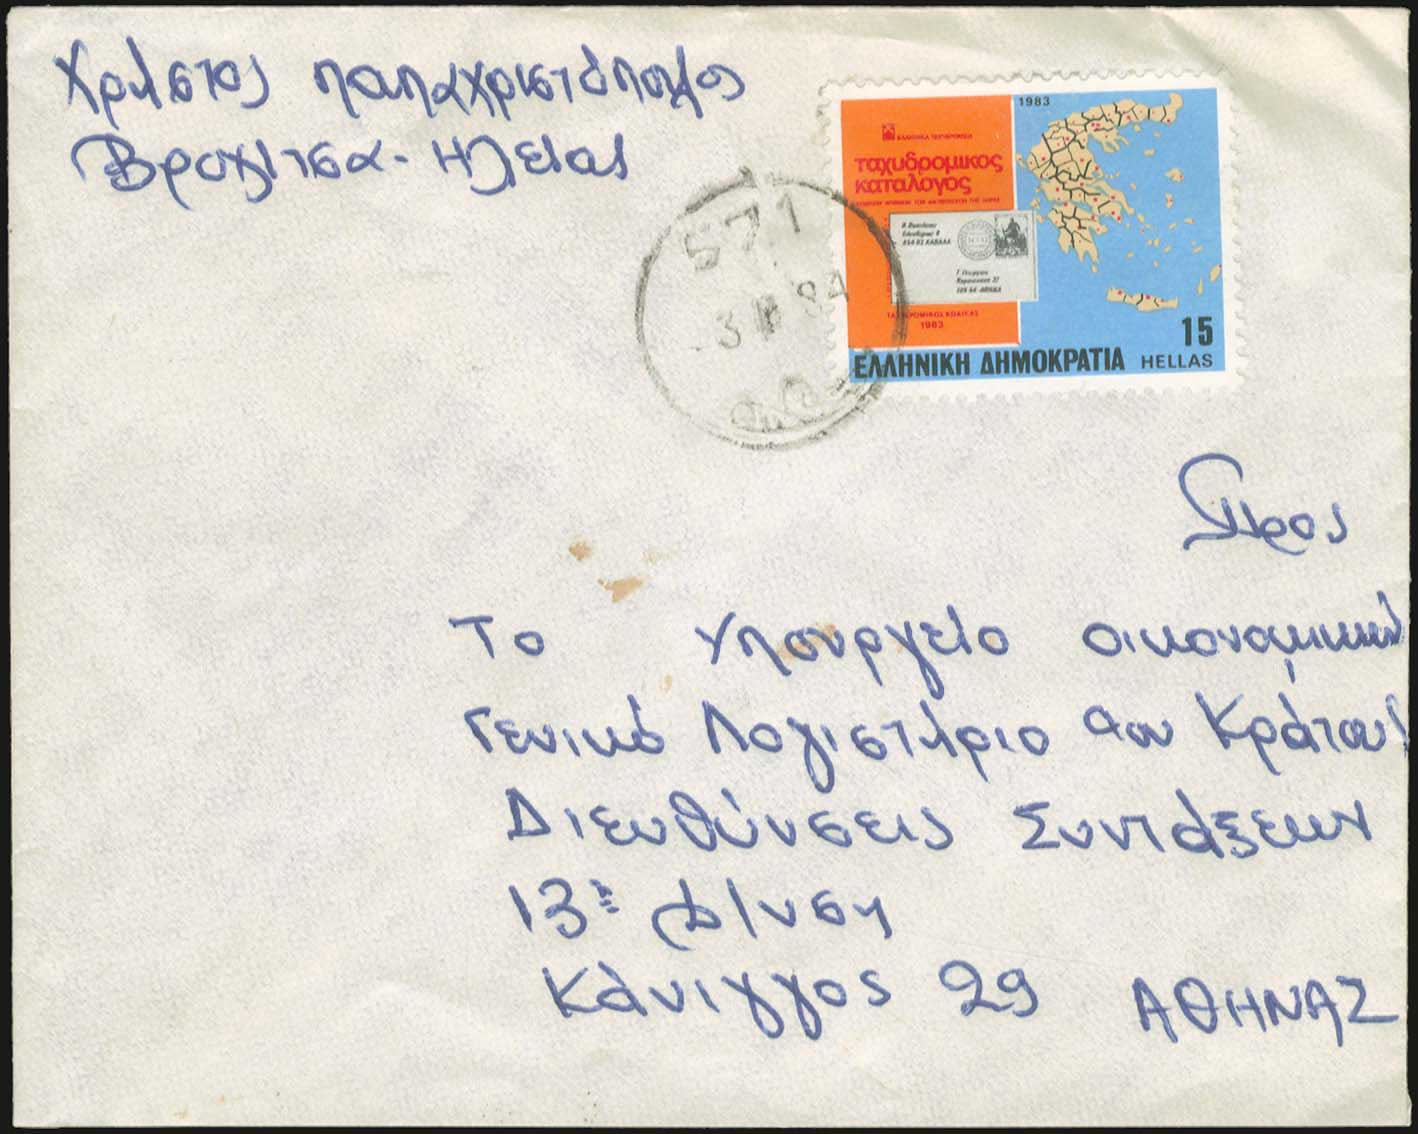 Χρήστος Παπαχριστόπουλος
Βροχίτσα - Ηλείας
571
3 84
1983
ΕΛΛΗΝΙΚΑ ΤΑΧΥΔΡΟΜΕΙΑ
ταχυδρομικος
καταλογος
654 03 ΚΑΒΑΛΑ
Γ. Γεωργίου
ΑΘΗΝΑ
ΤΑΧΥΔΡΟΜΙΚΟΣ ΚΩΔΙΚΑΣ
1983
15
ΕΛΛΗΝΙΚΗ ΔΗΜΟΚΡΑΤΙΑ HELLAS
Προς
Το Υπουργείο οικονομικών
Γενικό Λογιστήριο του Κράτους
Διευθύνσεις Συντάξεων
13η Δ/νση
Κάνιγγος 29 ΑΘΗΝΑΣ